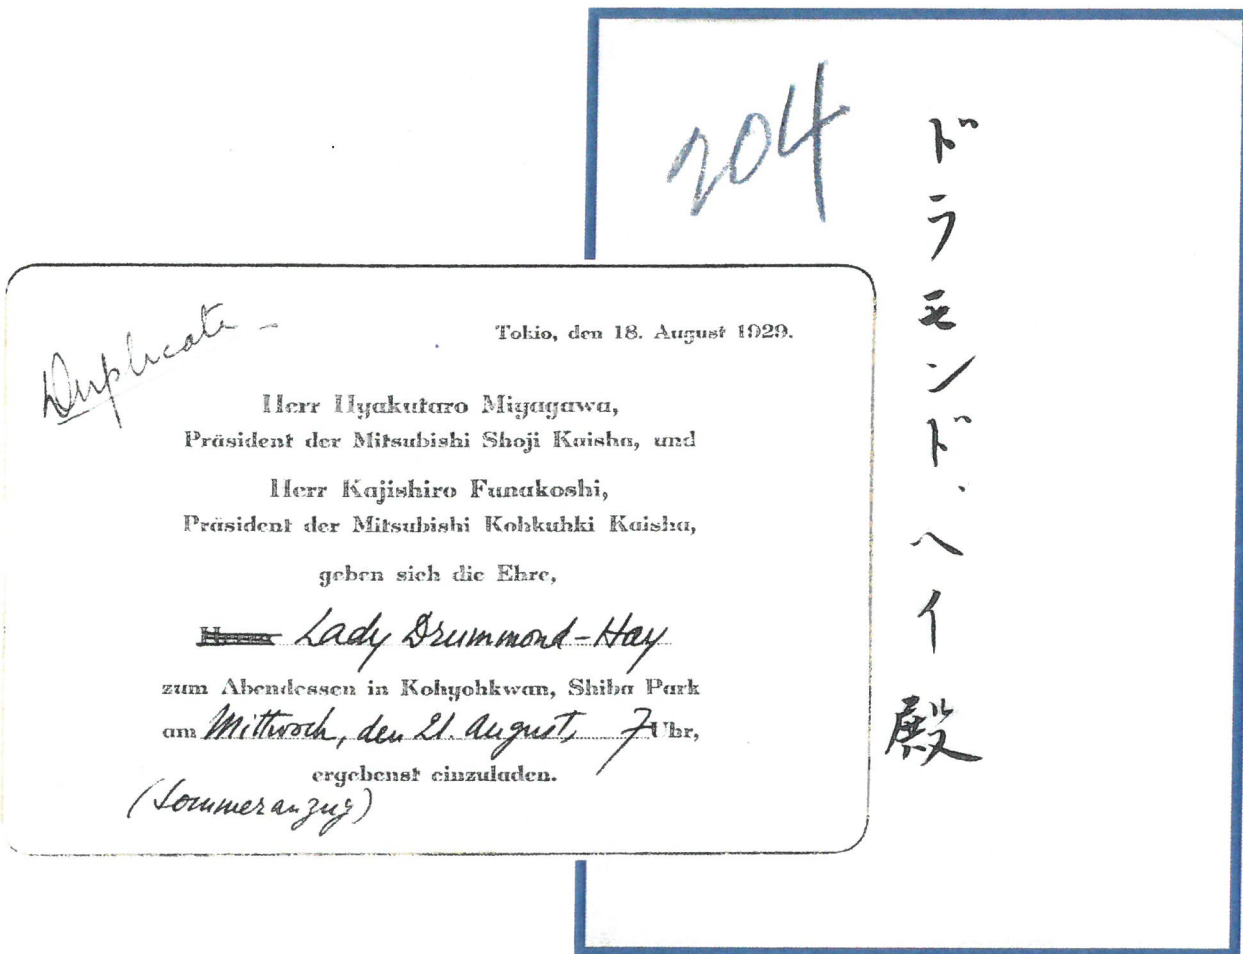 204
ドラモンド、ヘイ殿
Duplicate -
Tokio, den 18. August 1929.
Herr Hyakutaro Miyagawa,
Präsident der Mitsubishi Shoji Kaisha, und
Herr Kajishiro Funakoshi,
Präsident der Mitsubishi Kohkuhki Kaisha,
geben sich die Ehre,
Lady Drummond-Hay
zum Abendessen in Kohyohkwan, Shiba Park
am Mittwoch, den 21. August, 7 Uhr,
ergebenst einzuladen.
(Sommeranzug)